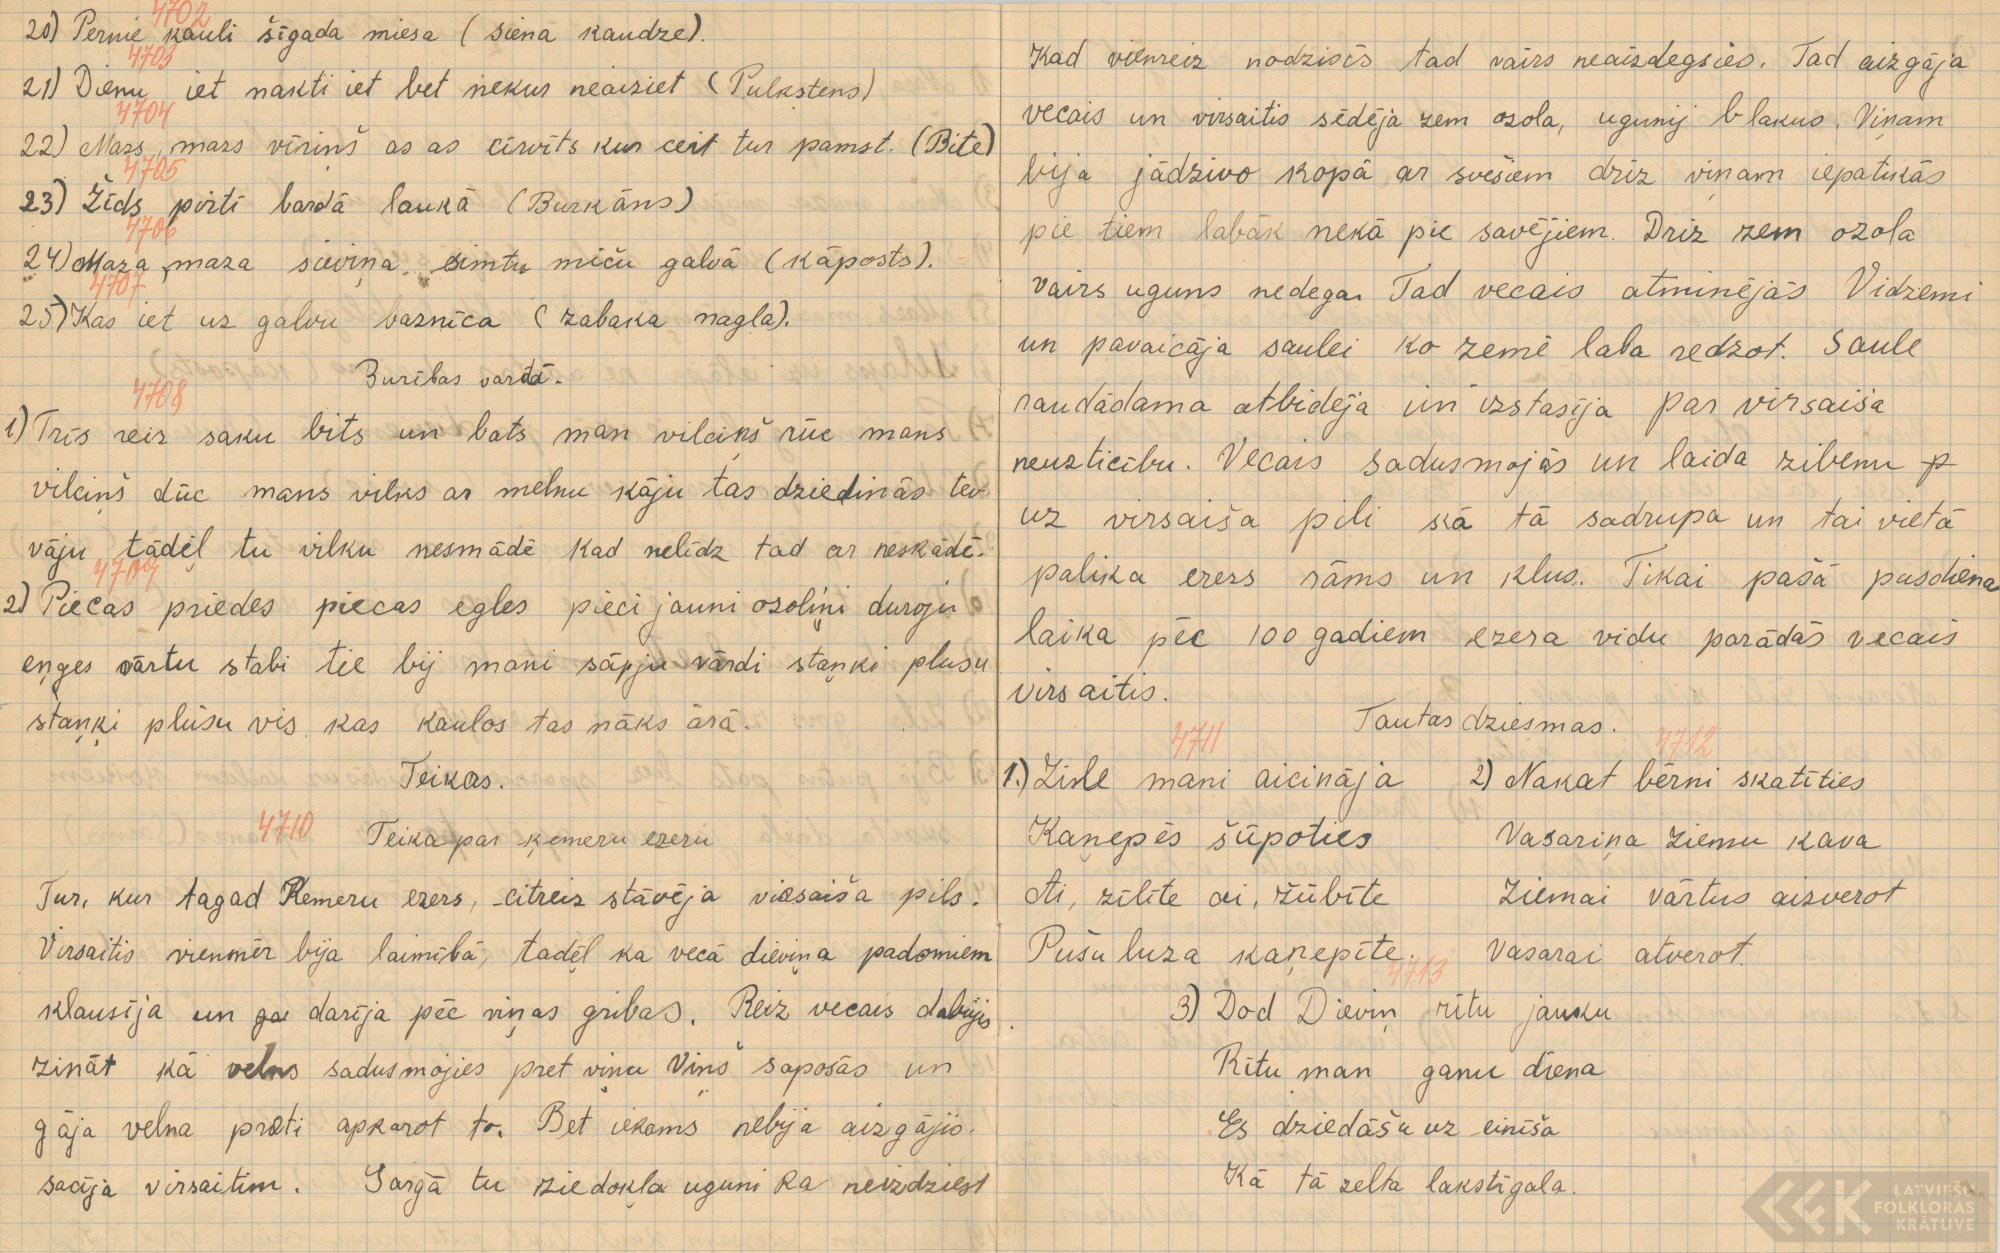 4702
20) Pernie kauli šīgada miesa (siena kaudze).
4703
21) Dienu iet nakti iet bet nekur neaiziet (Pulkstens)
4704
22) Mazs, mazs vīriņš as as cirvīts kur cert tur pamst. (Bite)
4705
23) Žīds pirtī bārdā laukā (Burkāns)
4706
24) Maza, maza sieviņa simtu miču galvā (kāposts).
4707
25) Kas iet uz galvu baznīca (zabaka nagla).
Burības vārdā.
4708
1) Trīs reiz saku bits un bats man vilciņš rūc mans
vilciņš dūc mans vilks ar melnu kāju tas dziedinās tev
vāju, tādēļ tu vilku nesmādē kad nelīdz tad ar neskādē.
4709
2) Piecas priedes piecas egles pieci jauni ozoliņi duroju
eņges vārtu stabi tie bij mani sāpju vārdi staņķi plusu
staņķi plūsu vis kas kaulos tas nāks ārā.
Teikas.
4710
Teika par ķemeru ezeru
Tur, kur tagad Ķemeru ezers, citreiz stāvēja virsaiša pils.
Virsaitis vienmēr bija laimībā, tadēļ ka vecā dieviņa padomiem
klausīja un darīja pēc viņas gribas. Reiz vecais dabūjis
zināt kā velns sadusmojies pret viņu Viņš saposās un
gāja velna prāti apkarot to. Bet iekams nebija aizgājis.
sacīja virsaitim. Sargā tu ziedokļa uguni ka neizdziest
Kad vienreiz nodzisīs tad vairs neaizdegsies. Tad aizgāja
vecais un virsaitis sēdēja zem ozola, ugunij blakus. Viņam
bija jādzivo kopā ar svešiem drīz viņam iepatikās
pie tiem labāk nekā pie savējiem. Drīz zem ozola
vairs uguns nedega. Tad vecais atminējās Vidzemi
un pavaicāja saulei ko zemē laba redzot. Saule
raudādama atbidēja un izstasīja par virsaiša
neuzticību. Vecais sadusmojās un laida zibenu p
uz virsaiša pili kā tā sadrupa un tai vietā
palika ezers rāms un klus. Tikai pašā pusdiena
laika pēc 100 gadiem ezera vidu parādās vecais
virsaitis.
Tautas dziesmas.
4711
1.) Zīle mani aicināja
Kaņepēs šūpoties
Ai, zīlīte ai, žūbīte
Pušu luza kaņepīte.
4712
2) Nakat bērni skatīties
Vasariņa ziemu kava
Ziemai vārtus aizverot
Vasarai atverot.
4713
3) Dod Dieviņ rītu jauku
Rītu man ganu diena
Es dziedāšu uz einīša
Kā tā zelta lakstīgala.
LATVIEŠU
FOLKLORAS
KRĀTUVE